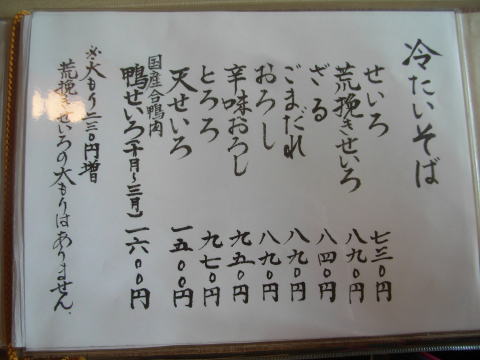 冷たいそば
せいろ 七三〇円
荒挽きせいろ 八九〇円
ざる 八四〇円
ごまだれ 八九〇円
おろし 八九〇円
辛味おろし 九五〇円
とろろ 九七〇円
天せいろ 一五〇〇円
国産合鴨肉
鴨せいろ(十月~三月) 一六〇〇円
※大もり二三〇円増
荒挽きせいろの大もりはありません。